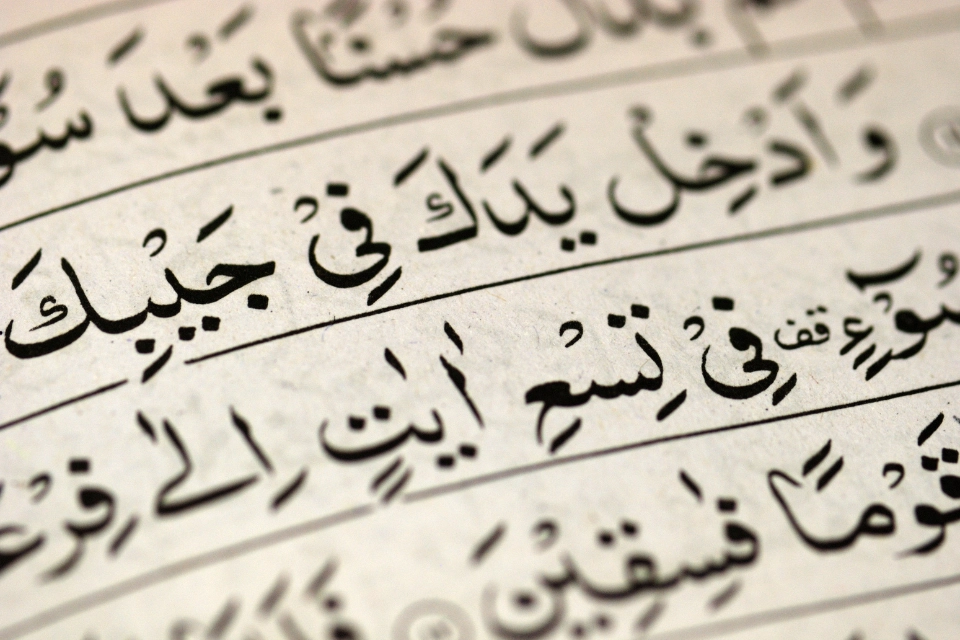 بَدَّلَ حُسْنًۢا بَعْدَ سُوْ
وَاَدْخِلْ يَدَكَ فِيْ جَيْبِكَ
سُوْٓءٍ ࣞقف فِيْ تِسْعِ اٰيٰتٍ اِلٰى فِرْعَ
قَوْمًا فٰسِقِيْنَ